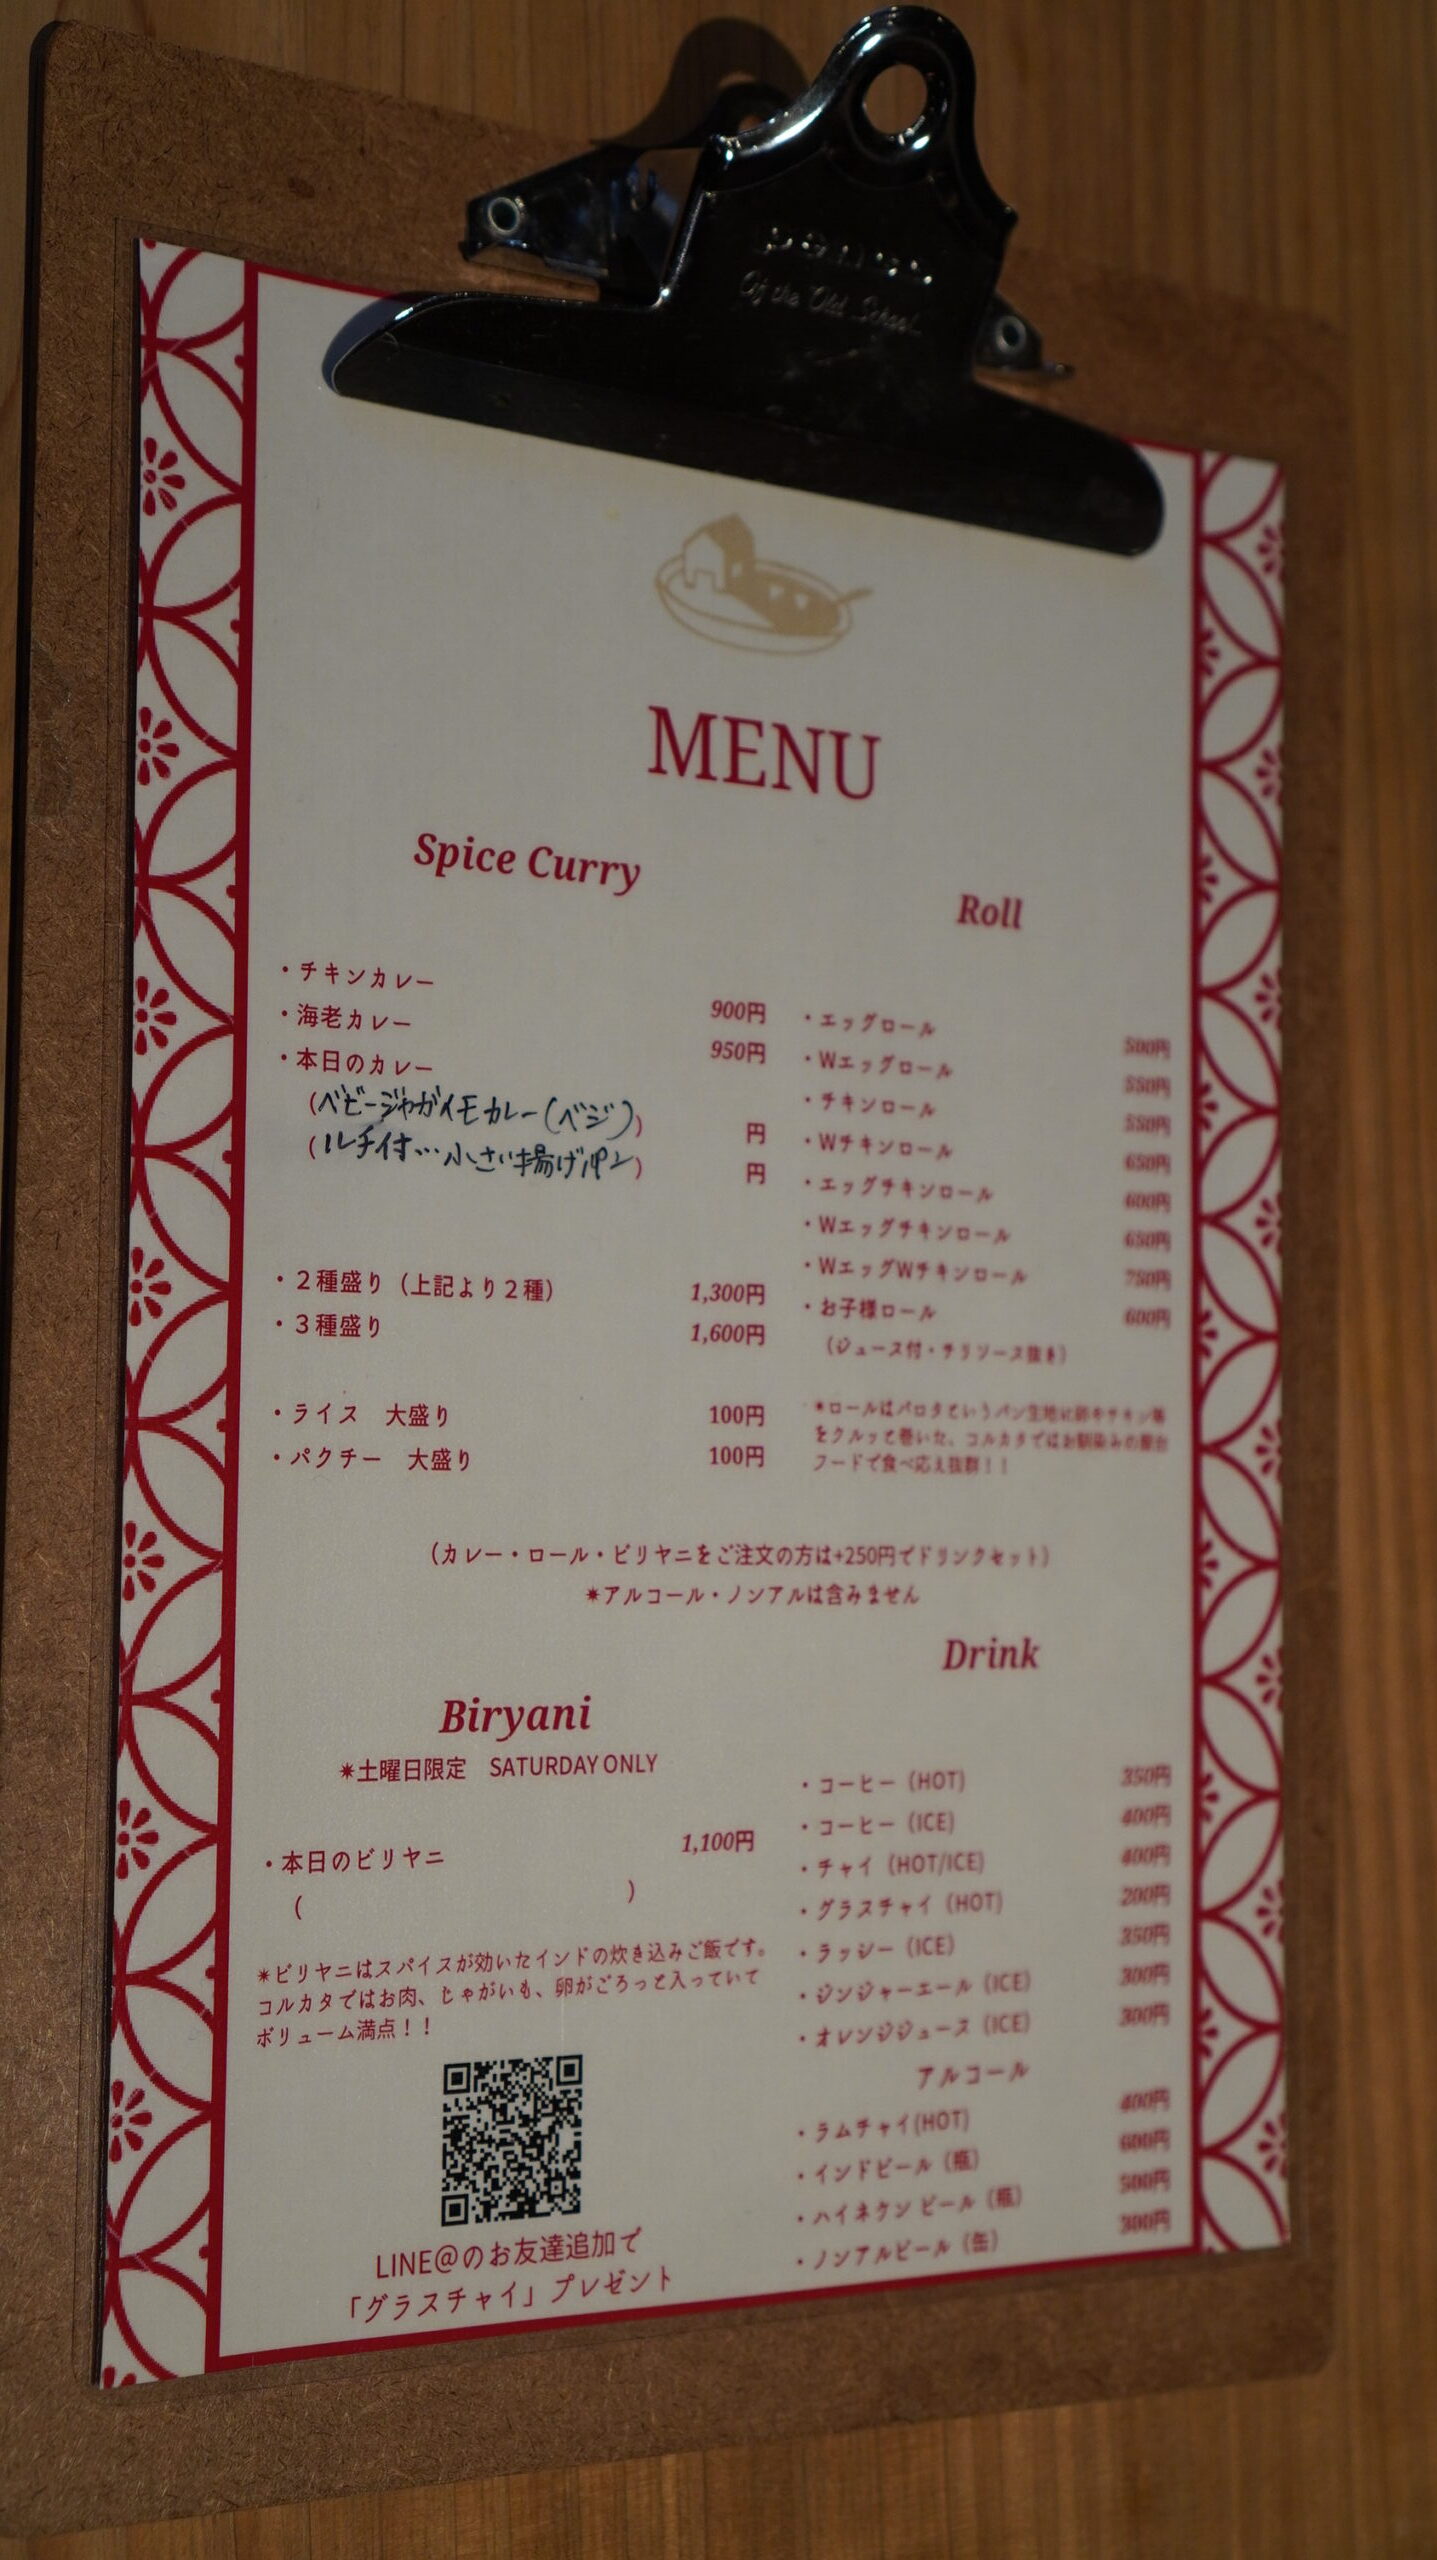 of the Old School
MENU
Spice Curry
・チキンカレー 900円
・海老カレー 950円
・本日のカレー
(ベビージャガイモカレー(ベジ)) 円
(ルチ付…小さい揚げパン) 円
・２種盛り（上記より２種） 1,300円
・３種盛り 1,600円
・ライス　大盛り 100円
・パクチー　大盛り 100円
Roll
・エッグロール 500円
・Wエッグロール 550円
・チキンロール 550円
・Wチキンロール 650円
・エッグチキンロール 600円
・Wエッグチキンロール 650円
・WエッグWチキンロール 750円
・お子様ロール 600円
（ジュース付・チリソース抜き）
✷ロールはパロタというパン生地に卵やチキン等
をクルッと巻いた、コルカタではお馴染みの屋台
フードで食べ応え抜群！！
（カレー・ロール・ビリヤニをご注文の方は+250円でドリンクセット）
✷アルコール・ノンアルは含みません
Biryani
✷土曜日限定　SATURDAY ONLY
・本日のビリヤニ 1,100円
(　)
✷ビリヤニはスパイスが効いたインドの炊き込みご飯です。
コルカタではお肉、じゃがいも、卵がごろっと入っていて
ボリューム満点！！
LINE@のお友達追加で
「グラスチャイ」プレゼント
Drink
・コーヒー（HOT） 350円
・コーヒー（ICE） 400円
・チャイ（HOT/ICE） 400円
・グラスチャイ（HOT） 200円
・ラッシー（ICE） 350円
・ジンジャーエール（ICE） 300円
・オレンジジュース（ICE） 300円
アルコール
・ラムチャイ(HOT) 400円
・インドビール（瓶） 600円
・ハイネケン ビール（瓶） 500円
・ノンアルビール（缶） 300円